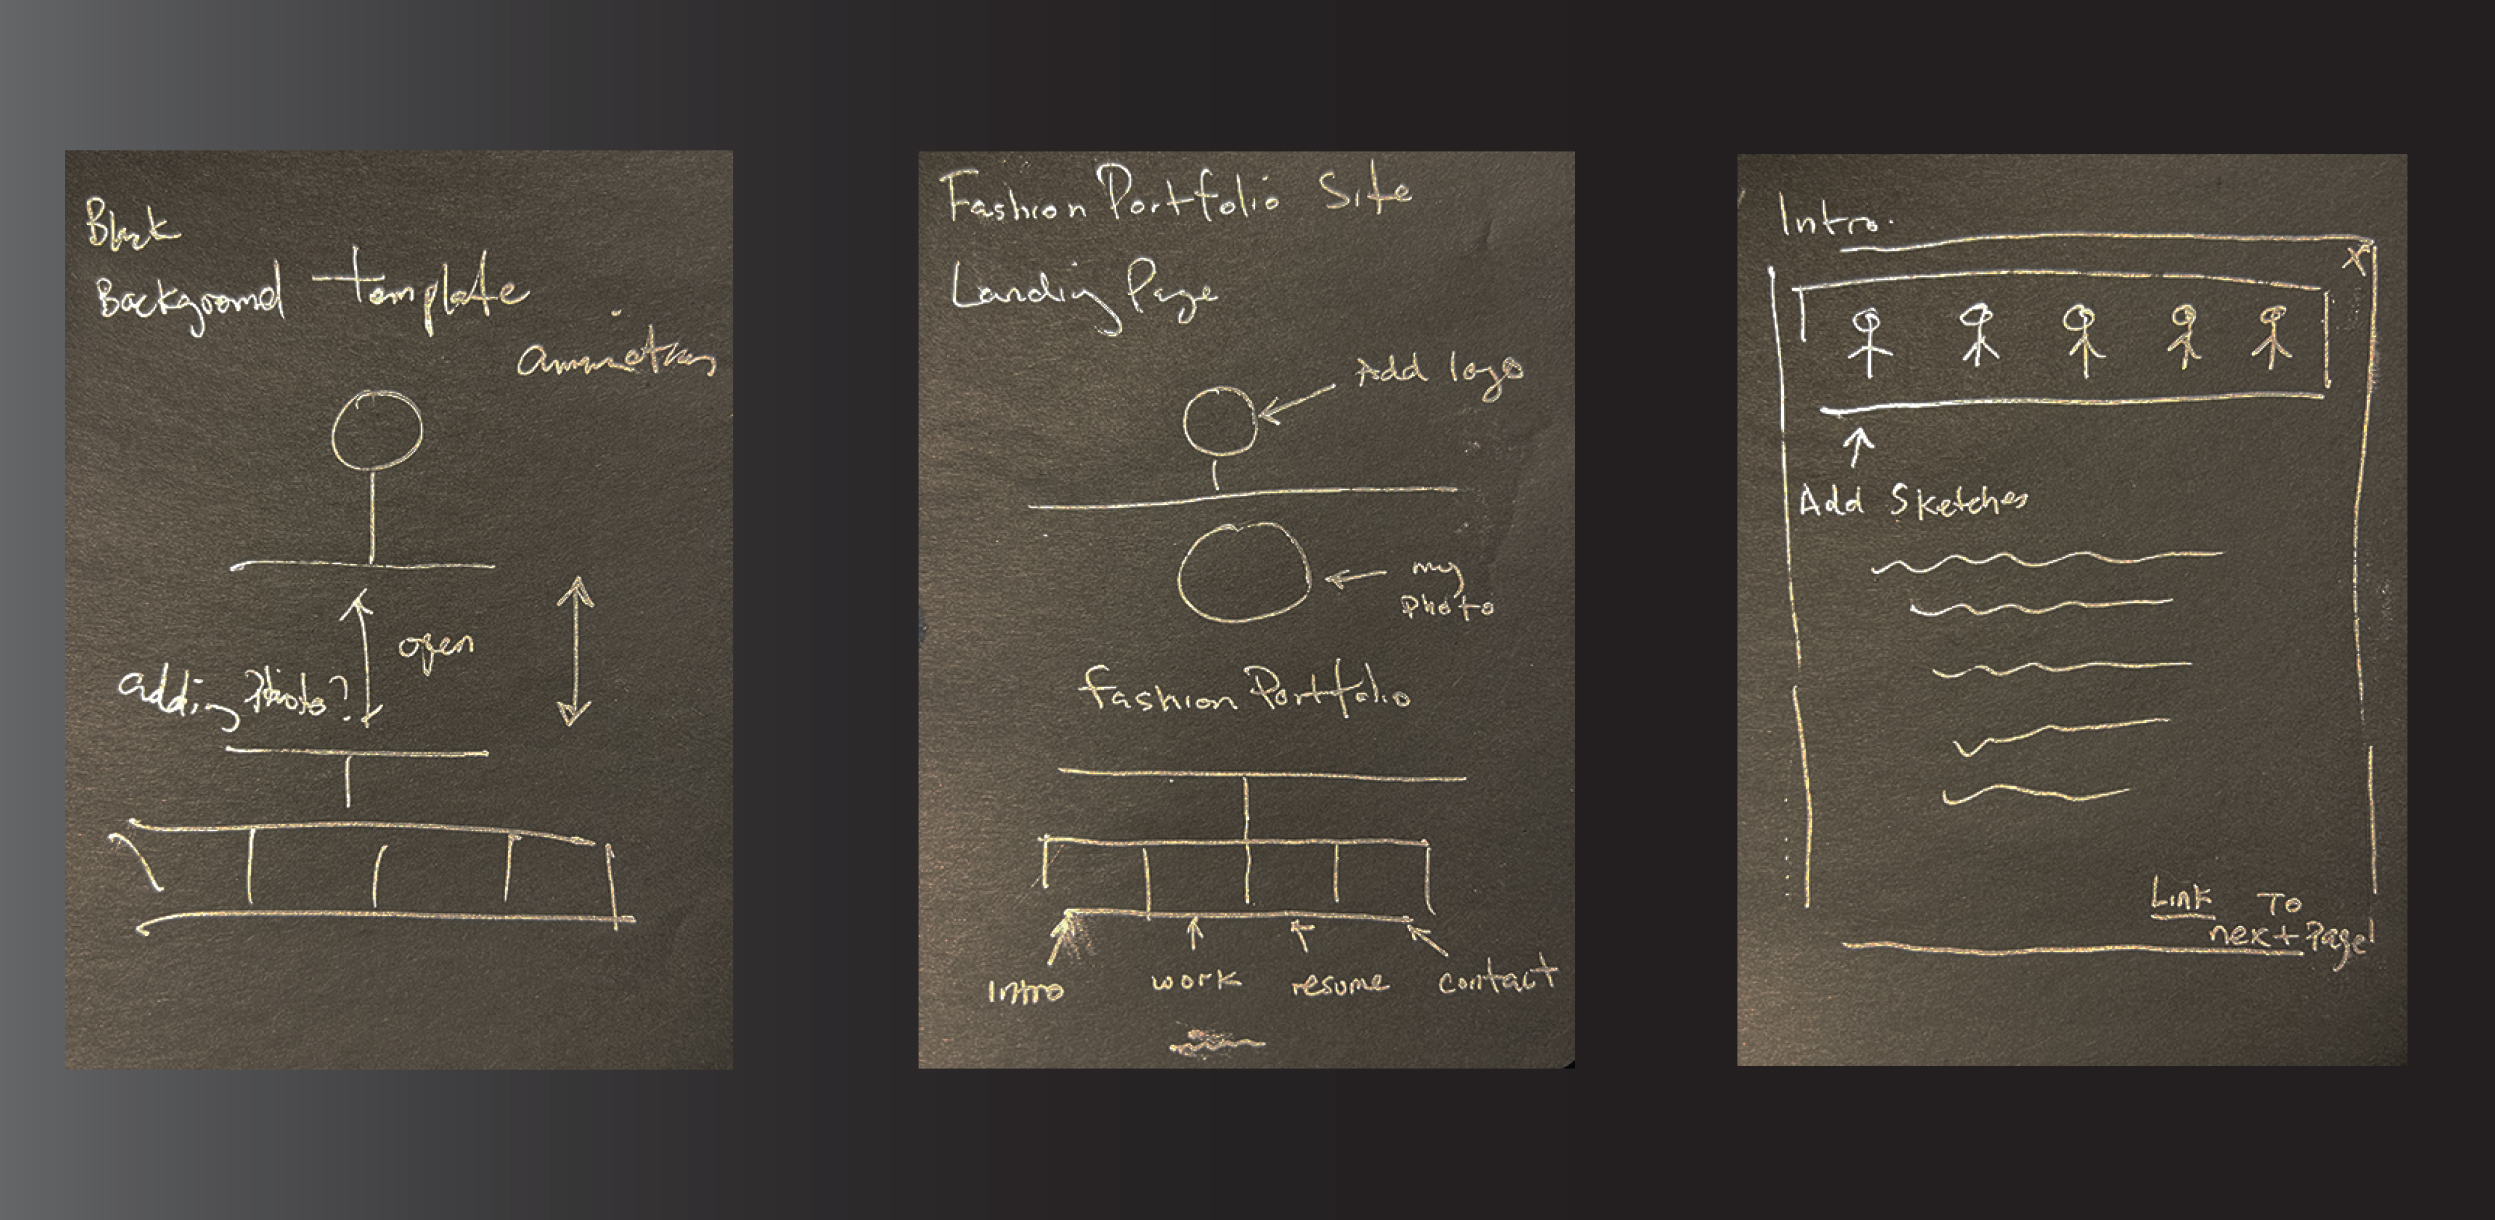 Black
Background template
animation
open
adding Photo?
Fashion Portfolio Site
Landing Page
Add logo
my
Photo
Fashion Portfolio
Intro
work
resume
contact
Intro.
X
Add Sketches
Link To
next Page